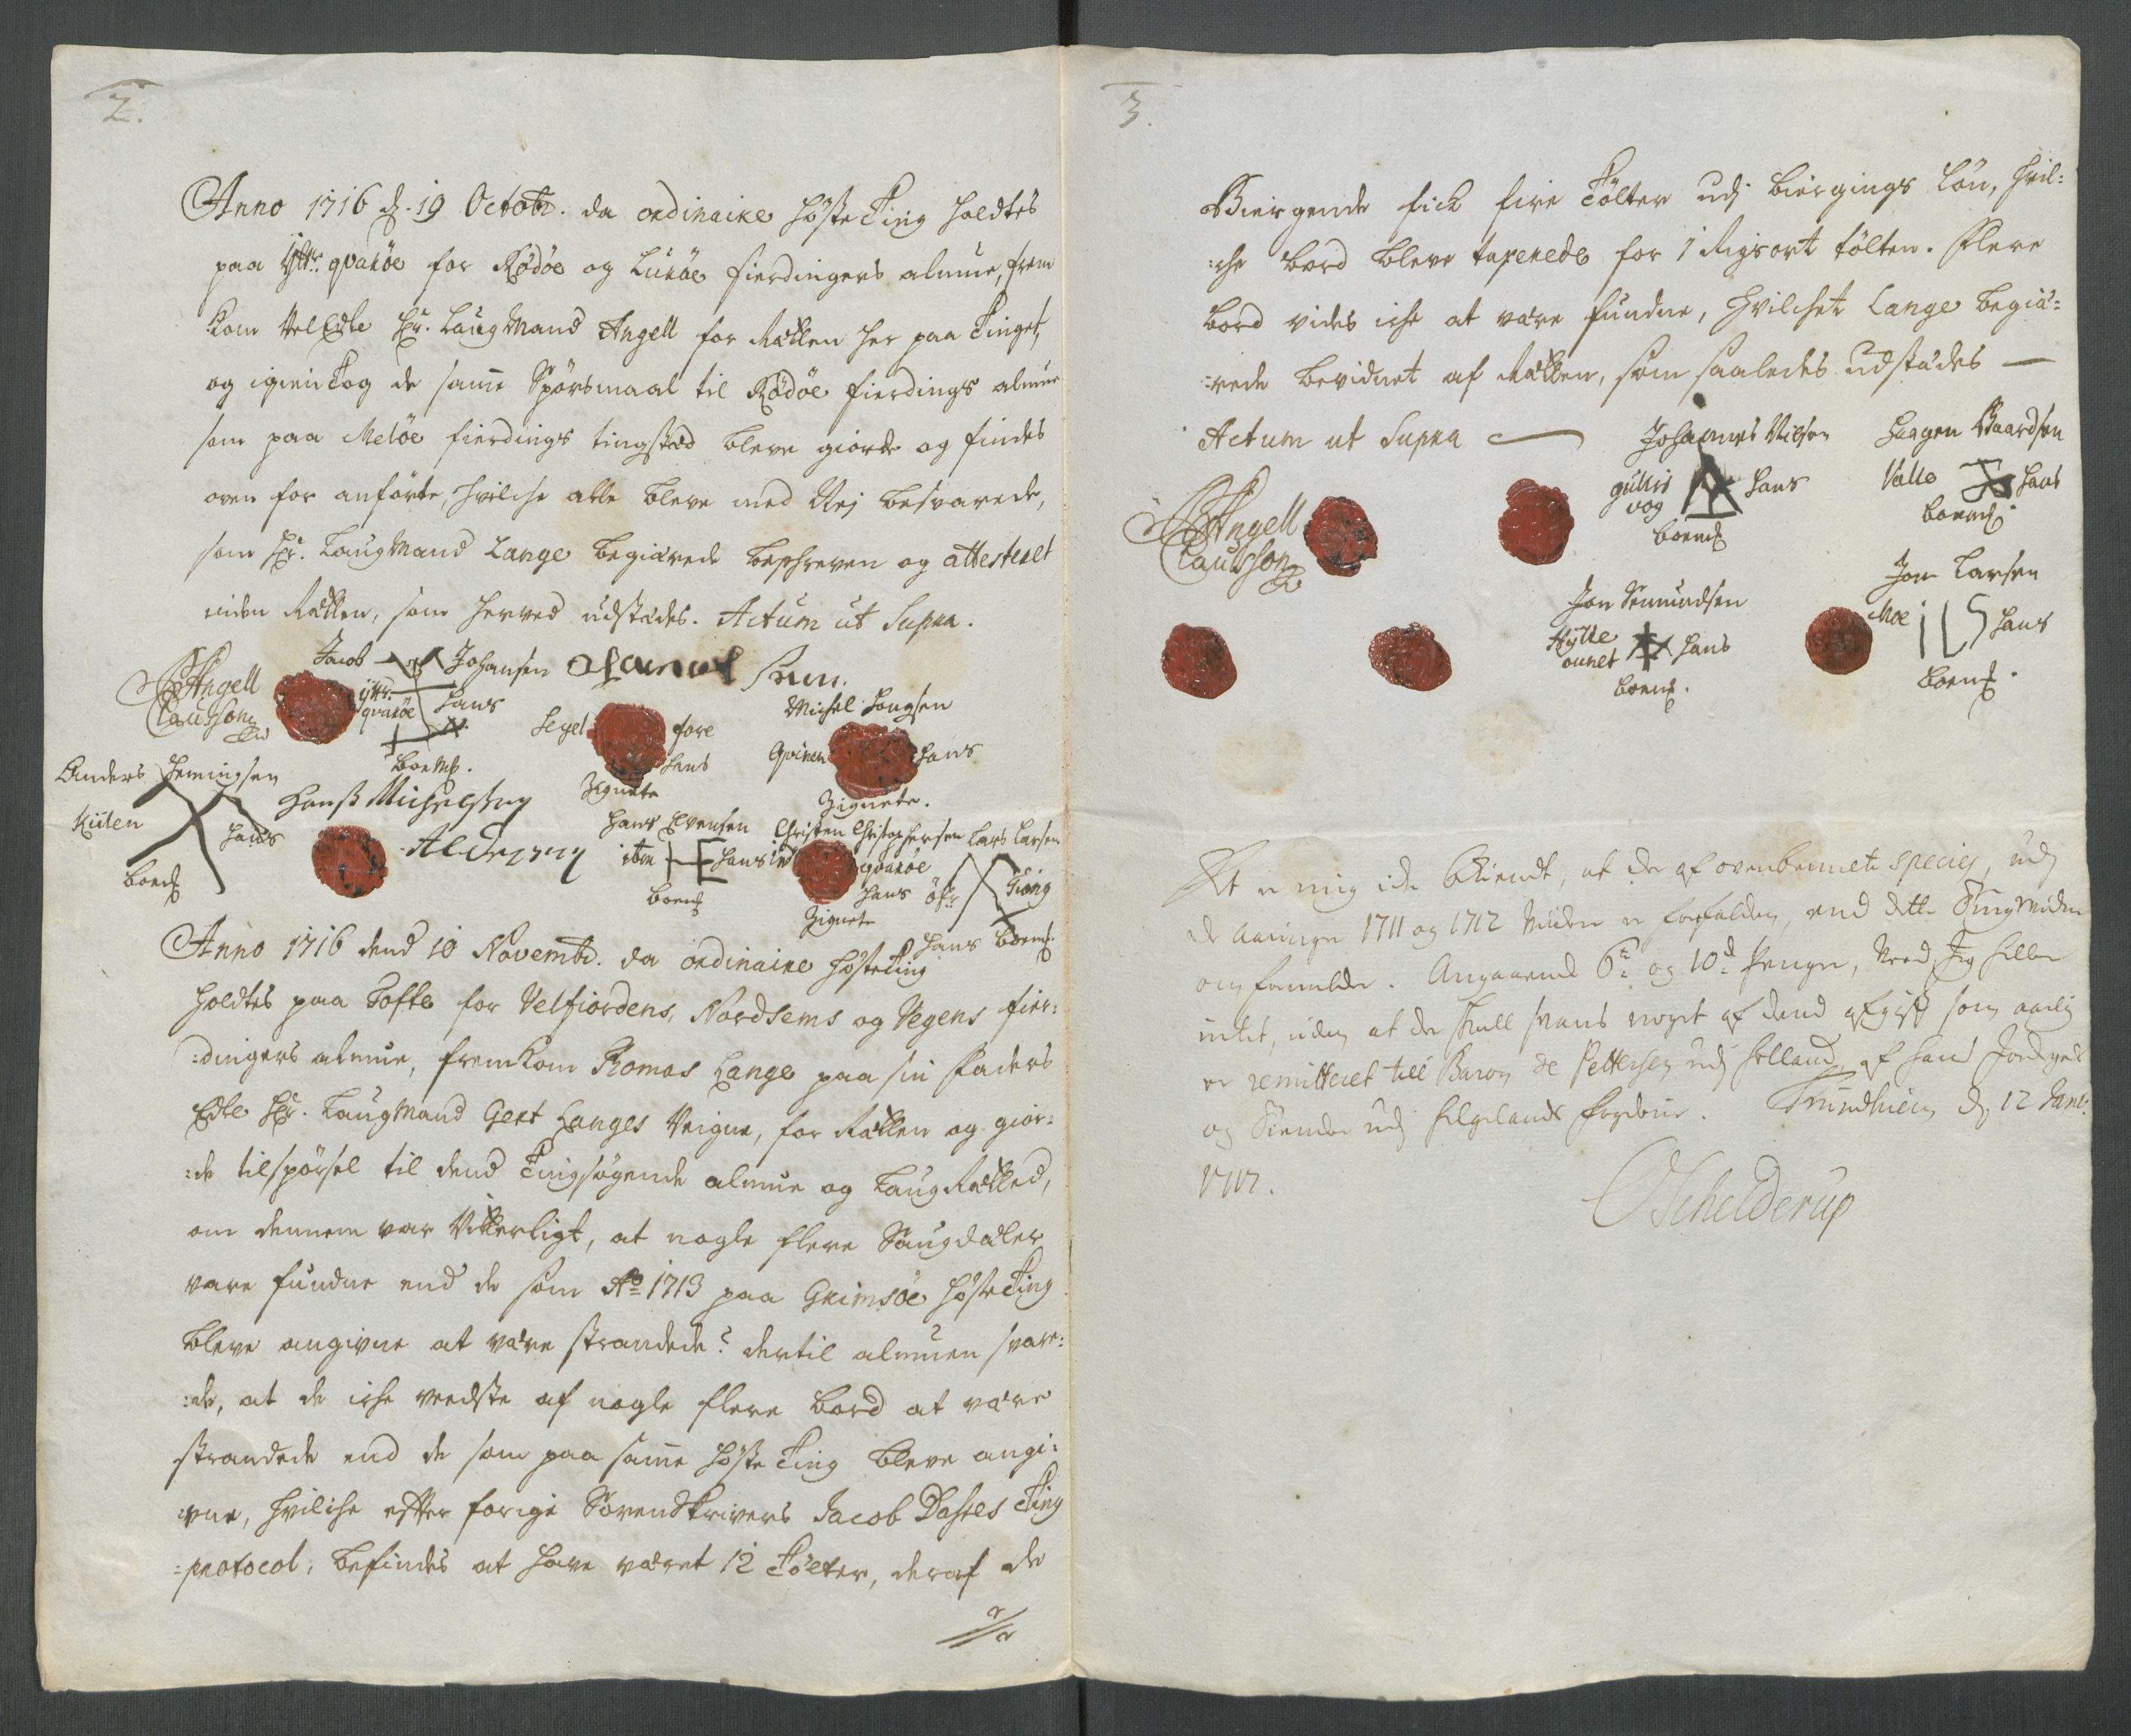 2.
Anno 1716 d. 19 Octobr. da ordinaire HøsteTing holdtes
paa ÿttr qvarøe for Rødøe og Lurøe fierdingers almue, frem
kom VelEdle Hr. LaugMand Angell for Rætten her paa Tinget,
og igientog de samme Spørsmaal til Rødøe fierdings almue
som paa Meløe fierdings tingstæd bleve giorde og findes
oven for anførte, hvilche alle bleve med Nej besvarede,
som Hr. LaugMand Lange begiærede beschreven og attesteret
inden Rætten, som herved udstædes. Actum ut Supra.
Angell
Claussøn
Jacob Johansen
ÿttr. qvarøe hans
boem.
Segel fore
hans
Zignete
Michel
hans
Zignete.
Anders Hemingsen
Kiilen hans
boem
Hanss Michelssen
Hans Evensen
hans
boem
Christen Christophersen
qvarøe
hans
Zignete
Lars Larsen
øfr Tiong
hans boem.
Anno 1716 dend 10 Novembr. da ordinaire HøsteTing
holdtes paa Tofte for Velfiordens, Nordsems og Vegens fier:
:dingers almue, fremkom Thomas Lange paa sin Faders
Edle Hr. LaugMand Gert Langes Veigne, for Rætten og gior:
:de tilspørsel til dend Tingsøgende almue og LaugRætted,
om dennem var Vitterligt, at nogle flere Saugdæler
vare fundne end de som Ao 1713 paa Grimsøe HøsteTing
bleve angivne at være strandede? dertil almuen svare:
:de, at de iche veedste af nogle flere bord at være
strandede end de som paa samme HøsteTing bleve angi:
:vne, hvilche efter forige Sørenskrivers Jacob Dasses Ting
:protocol, befindes at have været 12 Tølter, deraf de
3.
Biergende fick fire Tølter udj biergings løn, hvil:
:che bord bleve taxerede for 1 Rigsort tølten. Flere
bord vides iche at være fundne, hvilchet Lange begiæ:
:rede bevidnet af Rætten, som saaledes udstædes —
Actum ut Supra
Angell
Claussøn
Johannes Nilsen
hans
boem
Haagen Baardsen
Valle hans
boem.
Jon
hans
boem.
Jon Larsen
Moe ILS hans
boem.
Det er mig iche bekiendt, at der af ovenbemelte species, udj
de aaringer 1711 og 1712 Viidere er forfalden, end dette Tingsvidne
om formelder. Angaaende 6te og 10de Penge, Veed Jeg heller
intet, uden at der skall svares noget af dend afgift som aarlig
er remitteret till Baron de Pettersen udj Holland, af hans Jordegods
og Tiender udj Helgelands fogderie. Trundhiem d. 12 Janv.
1717.
OSchelderup